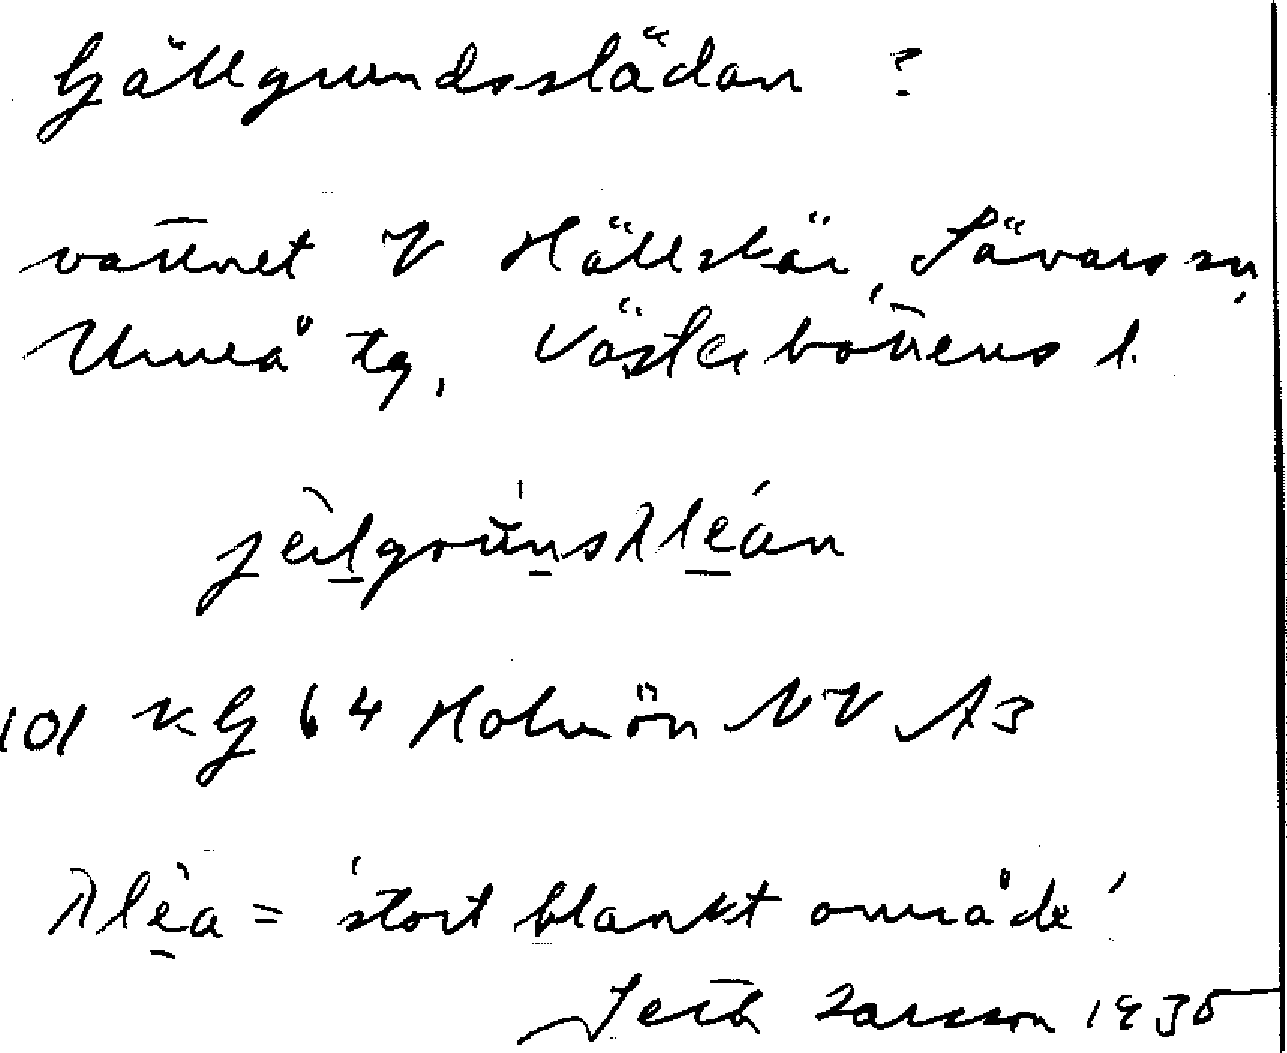 Gällgrundsslädan ?
vattnet V Hällskär, Sävars sn,
Umeå tg, Västerbottens l.
101 KG 64 Holmön NV A3
= 'stort blankt område'
Larsson 1935